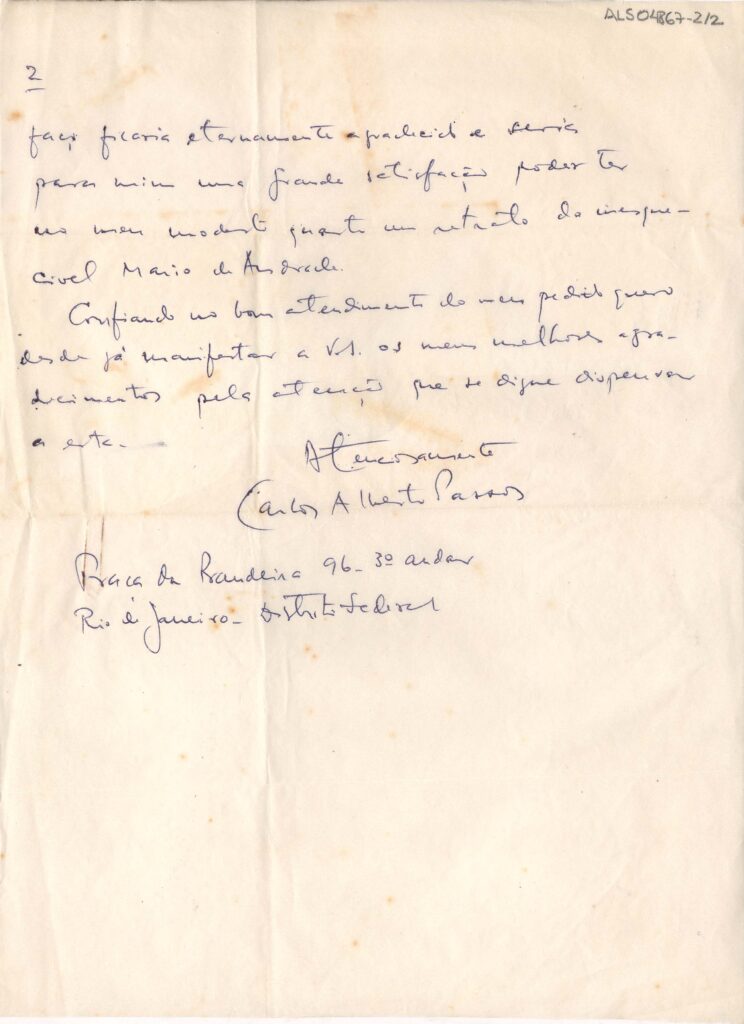 ALS04867-2/2
2
faço ficaria eternamente agradecido e seria
para mim uma grande satisfação poder ter
no meu modesto quarto um retrato do inesque-
civel Mario de Andrade.
Confiando no bom atendimento do meu pedido quero
desde já manifestar a V.S. os meus melhores agra-
decimentos pela atenção que se digne dispensar
a esta.
Atenciosamente
Carlos Alberto Passos
Praca da Bandeira 96 - 3º andar
Rio de Janeiro - Distrito Federal